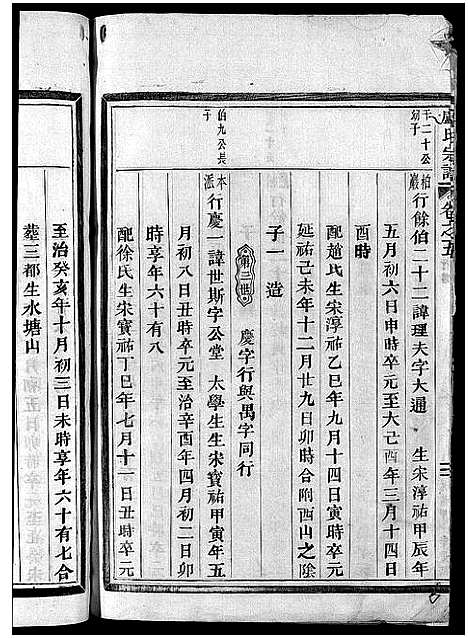 盧氏宗譜
卷之五
壬二十公
幼子
柏巖
行餘伯二十二諱理夫字大通 生宋淳祐甲辰年
五月初六日申時卒元至大己酉年三月十四日
酉時
配趙氏生宋淳祐乙巳年九月十四日寅時卒元
延祐己未年十二月廿九日卯時合附西山之陰
子一 造
第三世 慶字行與萬字同行
伯九公長
子
本派
行慶一諱世斯字公堂 太學生生宋寶祐甲寅年五
月初八日丑時卒元至治辛酉年四月初二日卯
時享年六十有八
配徐氏生宋寶祐丁巳年七月十一日丑時卒元
至治癸亥年十月初三日未時享年六十有七合
葬三都生水塘山